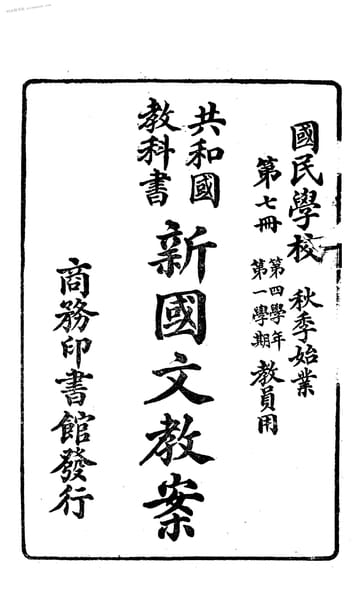 國民學校 秋季始業
第七冊 第四學年 第一學期 教員用
共和國
教科書
新國文教案
商務印書館發行